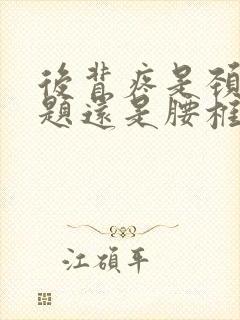 後背疼是頸
題還是腰椎
江碩平